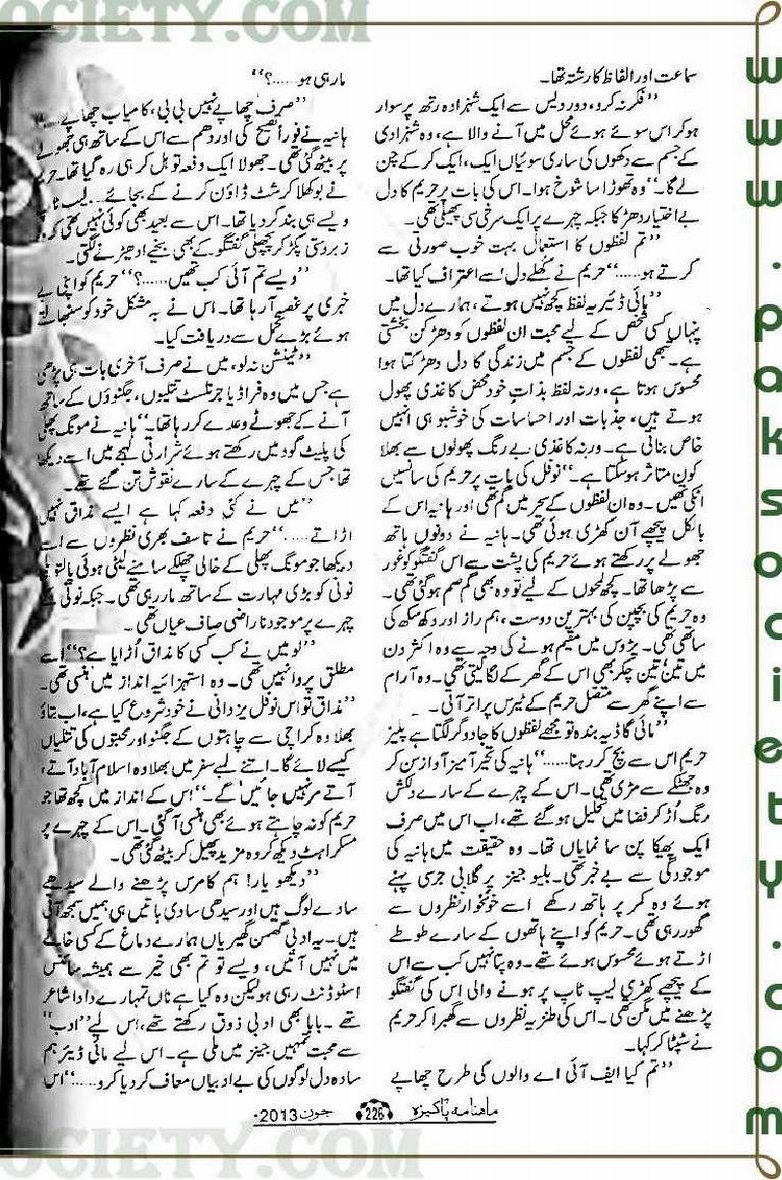 OCIETY.COM
سماعت اور الفاظ کا رشتہ تھا۔
”فکر نہ کرو، دور دیس سے ایک شہزادہ رتھ پر سوار
ہو کر اس سوئے ہوئے محل میں آنے والا ہے، وہ شہزادی
کے جسم سے دکھوں کی ساری سوئیاں ایک، ایک کر کے چن
لے گا۔“ وہ تھوڑا سا شوخ ہوا۔ اس کی بات پر حریم کا دل
بے اختیار دھڑکا جبکہ چہرے پر ایک سرخی سی پھیلی تھی۔
”تم لفظوں کا استعمال بہت خوب صورتی سے
کرتے ہو.....“ حریم نے کھلے دل سے اعتراف کیا تھا۔
”مائی ڈئیر یہ لفظ کچھ نہیں ہوتے، ہمارے دل میں
پنہاں کسی شخص کے لیے محبت ان لفظوں کو دھڑکن بخشتی
ہے۔ تبھی لفظوں کے جسم میں زندگی کا دل دھڑکتا ہوا
محسوس ہوتا ہے، ورنہ لفظ بذاتِ خود محض کاغذی پھول
ہوتے ہیں، جذبات اور احساسات کی خوشبو ہی انہیں
خاص بناتی ہے۔ ورنہ کاغذی بے رنگ پھولوں سے بھلا
کون متاثر ہو سکتا ہے۔“ نوفل کی بات پر حریم کی سانسیں
اٹکی تھیں۔ وہ ان لفظوں کے سحر میں گم تھی اور ہانیہ اس کے
بالکل پیچھے آن کھڑی ہوئی تھی۔ ہانیہ نے دونوں ہاتھ
جھولے پر رکھتے ہوئے حریم کی پشت سے اس گفتگو کو غور
سے پڑھا تھا۔ کچھ لمحوں کے لیے تو وہ بھی گم صم ہو گئی تھی۔
وہ حریم کی بچپن کی بہترین دوست، ہم راز اور دکھ سکھ کی
ساتھی تھی۔ پڑوس میں مقیم ہونے کی وجہ سے وہ اکثر دن
میں تین، تین چکر بھی اس کے گھر کے لگا لیتی تھی۔ وہ آرام
سے اپنے گھر سے متصل حریم کے ٹیرس پر اتر آتی۔
”مائی گاڈ یہ بندہ تو مجھے لفظوں کا جادوگر لگتا ہے پلیز
حریم اس سے بچ کر رہنا.....“ ہانیہ کی تحیر آمیز آواز سن کر
وہ جھٹکے سے مڑی تھی۔ اس کے چہرے کے سارے دلکش
رنگ اڑ کر فضا میں تحلیل ہو گئے تھے، اب اس میں صرف
ایک پھیکا پن سا نمایاں تھا۔ وہ حقیقت میں ہانیہ کی
موجودگی سے بے خبر تھی۔ بلیو جینز پر گلابی جرسی پہنے
ہوئے وہ کمر پر ہاتھ رکھے اسے خونخوار نظروں سے
گھور رہی تھی۔ حریم کو اپنے ہاتھوں کے سارے طوطے
اڑتے ہوئے محسوس ہوئے تھے۔ وہ پتا نہیں کب سے اس
کے پیچھے کھڑی لیپ ٹاپ پر ہونے والی اس کی گفتگو
پڑھنے میں مگن تھی۔ اس کی طنزیہ نظروں سے گھبرا کر حریم
نے سٹپٹا کر کہا۔
”تم کیا ایف آئی اے والوں کی طرح چھاپے
مار رہی ہو.....؟“
”صرف چھاپے نہیں بی بی، کامیاب چھاپے....“
ہانیہ نے فوراً تصحیح کی اور دھم سے اس کے ساتھ ہی جھولے
پر بیٹھ گئی تھی۔ جھولا ایک دفعہ تو ہل کر ہی رہ گیا تھا۔ حریم
نے بوکھلا کر شٹ ڈاؤن کرنے کے بجائے... لیپ ٹاپ
ویسے ہی بند کر دیا تھا۔ اس سے بعید بھی کوئی نہیں تھی کہ وہ
زبردستی پکڑ کر پچھلی گفتگو کے بھی بخیے ادھیڑنے لگتی۔
”ویسے تم آئی کب تھیں.....؟“ حریم کو اپنی بے
خبری پر غصہ آ رہا تھا۔ اس نے بہ مشکل خود کو سنبھالتے
ہوئے بڑے تحمل سے دریافت کیا۔
”ٹینشن نہ لو، میں نے صرف آخری بات ہی پڑھی
ہے جس میں وہ فراڈیا جرنلسٹ تتلیوں، جگنوؤں کے ساتھ
آنے کے جھوٹے وعدے کر رہا تھا۔“ ہانیہ نے مونگ پھلی
کی پلیٹ گود میں رکھتے ہوئے شرارتی لہجے میں اسے دیکھا
تھا جس کے چہرے کے سارے نقوش تن گئے تھے۔
”میں نے کئی دفعہ کہا ہے ایسے مذاق نہیں
اڑاتے.....“ حریم نے تاسف بھری نظروں سے اسے
دیکھا جو مونگ پھلی کے خالی چھلکے سامنے لیٹی ہوئی پالتو بلی
نونی کو بڑی مہارت کے ساتھ مار رہی تھی۔ جبکہ نونی کے
چہرے پر موجود ناراضی صاف عیاں تھی۔
”لو میں نے کب کسی کا مذاق اُڑایا ہے؟“ اسے
مطلق پروا نہیں تھی۔ وہ استہزائیہ انداز میں ہنسی تھی۔
”مذاق تو اس نوفل یزدانی نے خود شروع کیا ہے، اب بتاؤ
بھلا وہ کراچی سے چاہتوں کے جگنو اور محبتوں کی تتلیاں
کیسے لائے گا۔ اتنے لمبے سفر میں بھلا وہ اسلام آباد آتے،
آتے مر نہیں جائیں گے۔“ اس کے انداز میں کچھ تھا جو
حریم کو نہ چاہتے ہوئے بھی ہنسی آ گئی۔ اس کے چہرے پر
مسکراہٹ دیکھ کر وہ مزید پھیل کر بیٹھ گئی تھی۔
”دیکھو یار! ہم کامرس پڑھنے والے سیدھے
سادے لوگ ہیں اور سیدھی سادی باتیں ہی ہمیں سمجھ آتی
ہیں۔ یہ ادبی گھمن گھیریاں ہمارے دماغ کے کسی خانے
میں نہیں آتیں، ویسے تو تم بھی خیر سے ہمیشہ سائنس
اسٹوڈنٹ رہی ہو لیکن وہ کیا ہے ناں تمہارے دادا شاعر
تھے۔ بابا بھی ادبی ذوق رکھتے تھے، اس لیے ”ادب“
سے محبت تمہیں جینز میں ملی ہے۔ اس لیے مائی ڈیئر ہم
سادہ دل لوگوں کی بے ادبیاں معاف کر دیا کرو.....“ اس
ماہنامہ پاکیزہ 226 جون 2013ء
www.paksociety.com
OCIETY.COM